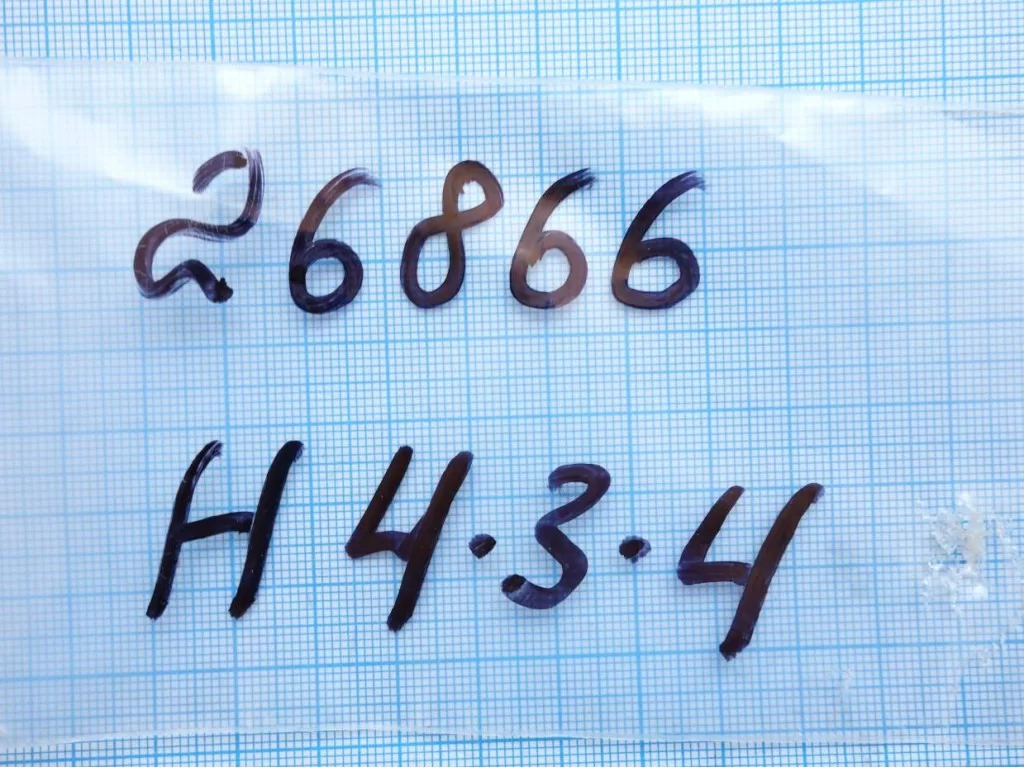 26866
H 4.3.4